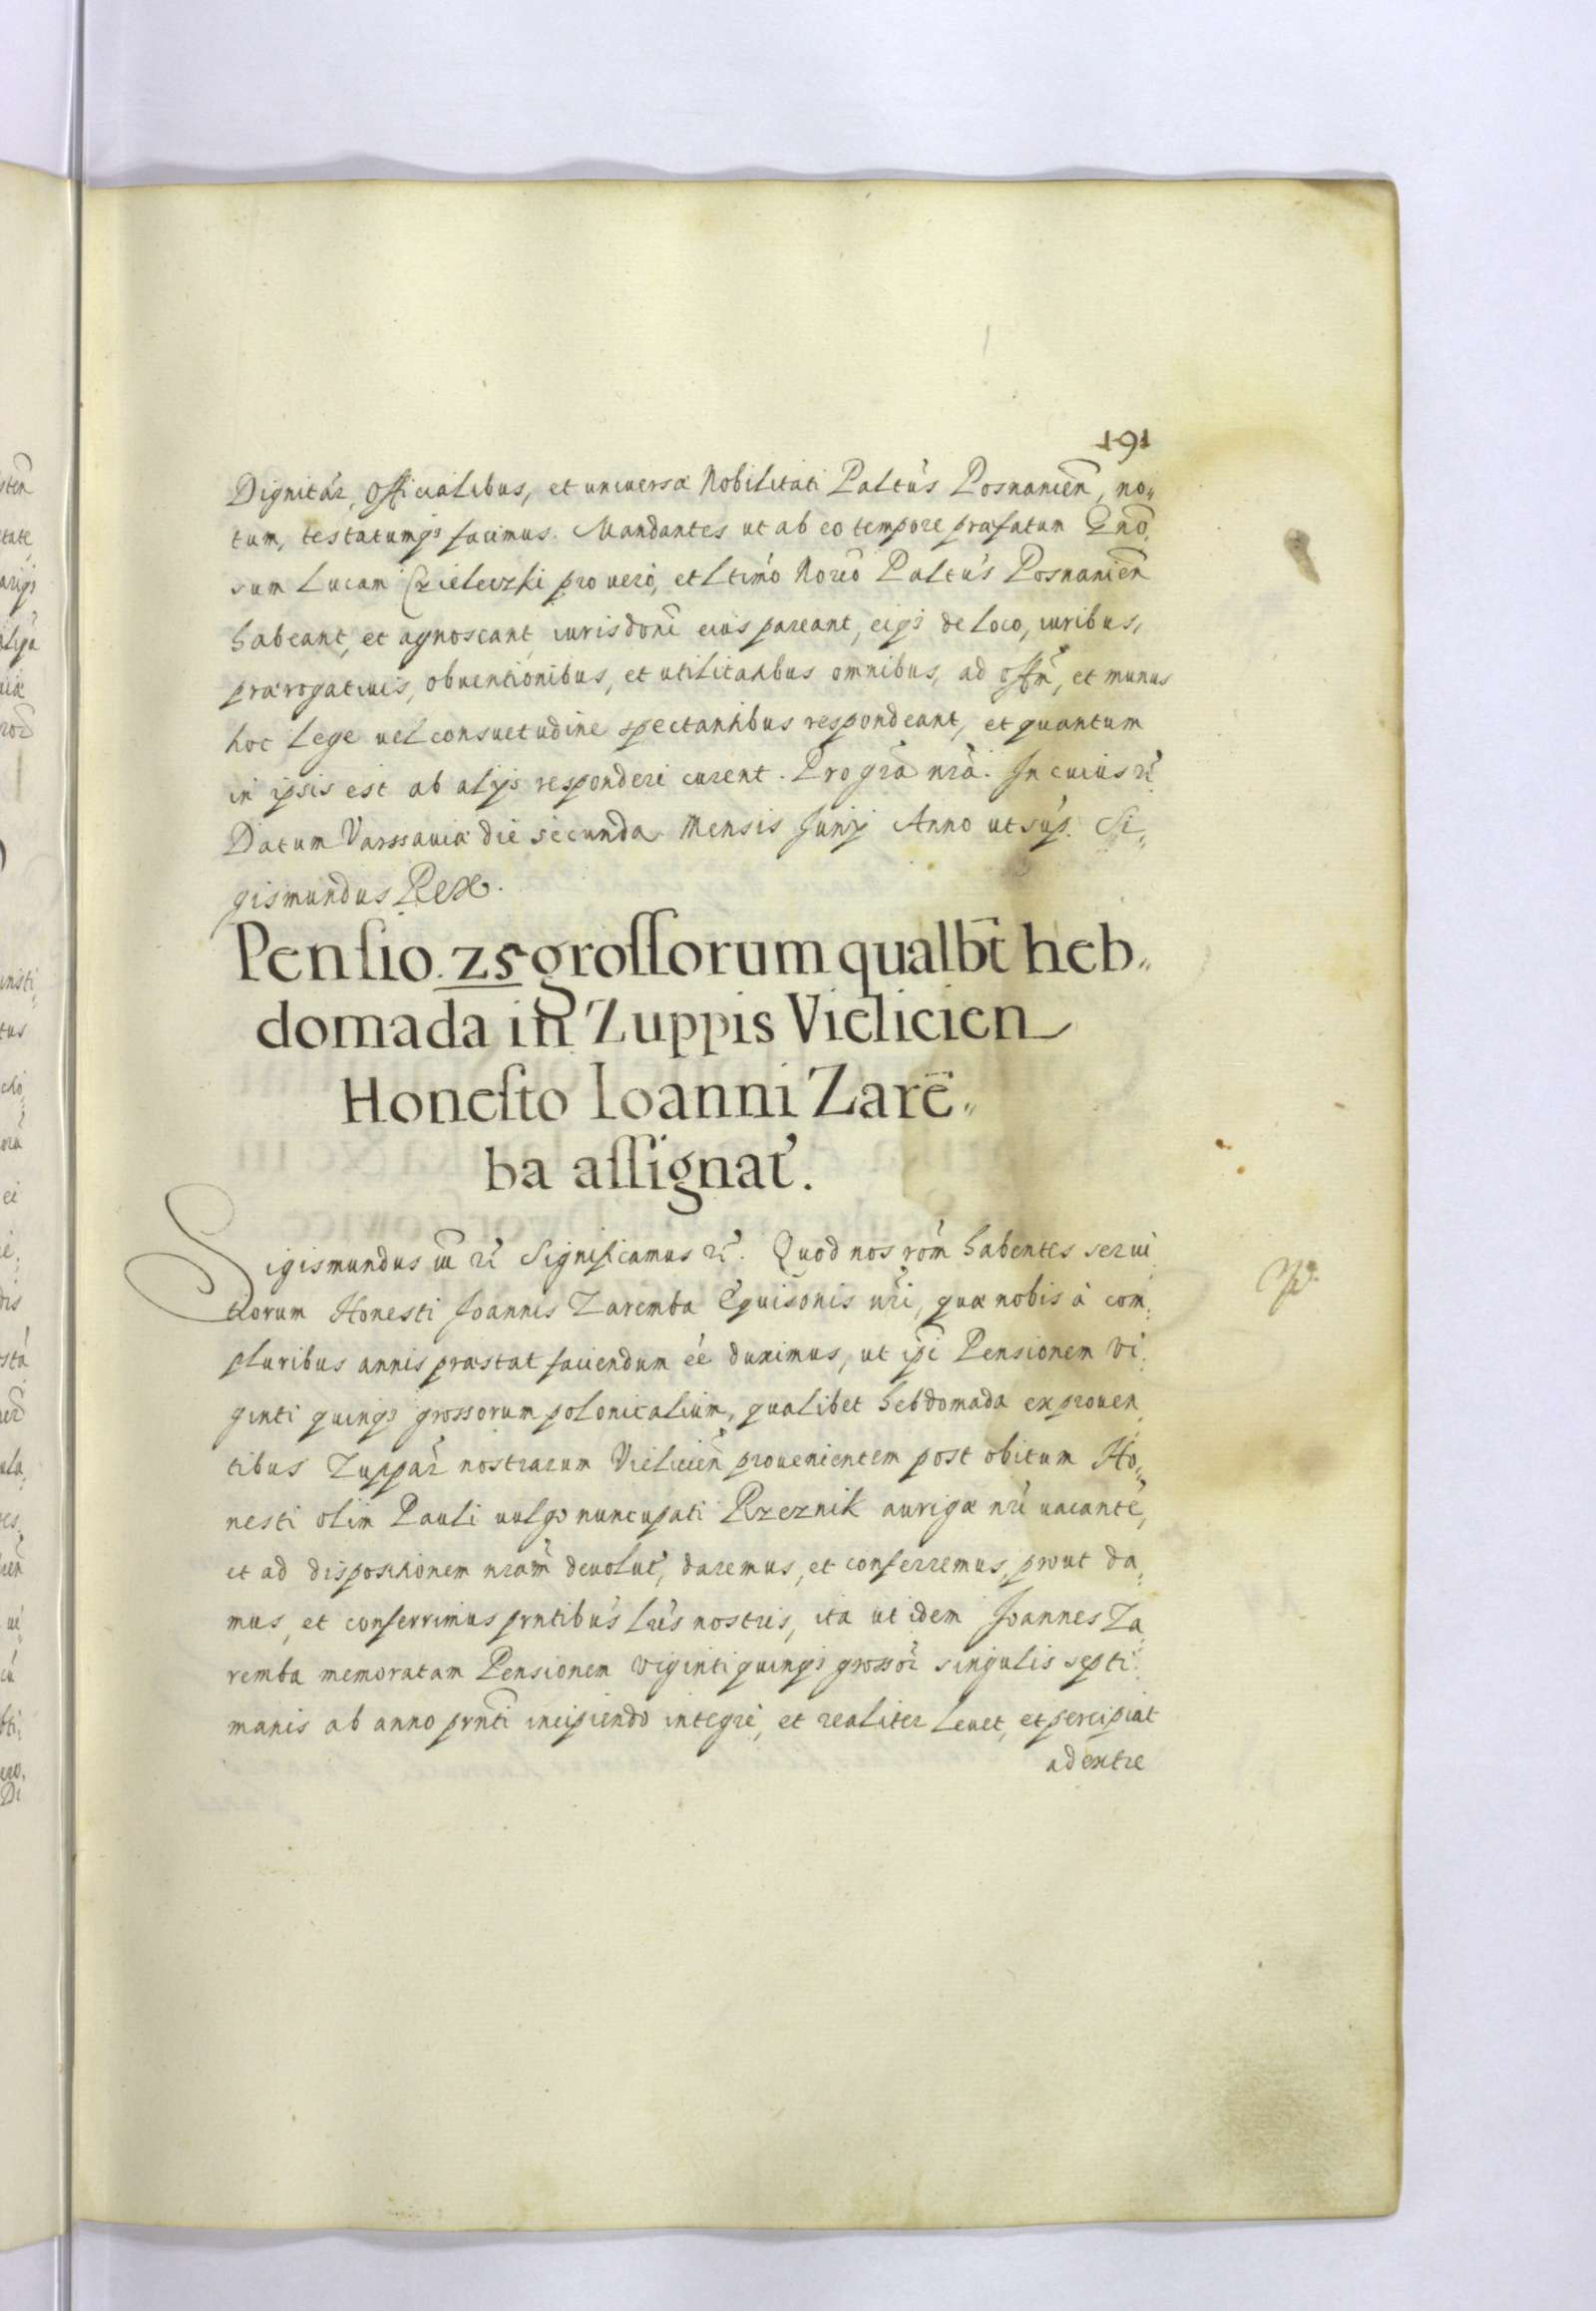 191
Dignitar̃, Officialibus, et universæ Nobilitati Paltûs Posnanieñ, no„
tum, testatumq; facimus. Mandantes ut ab eo tempore præfatum Gño„
sum Lucam Czieleczki pro vero, et ltimo Norĩo Paltûs Posnanieñ
habeant, et agnoscant, iurisdoni eius pareant, eiq; de loco, iuribus,
prærogativis, obventionibus, et utilitatibus omnibus, ad offm̃, et munus
hoc lege vel consuetudine spectantibus respondeant, et quantum
in ipsis est ab alijs responderi curent. Pro grã nrã. In cuius rĩ
Datum Varssaviæ die secunda Mensis Junij Anno ut sup. Si„
gismundus Rex.
Pensio 25 grossorum qualbt̃ heb„
domada in Zuppis Vielicien
Honesto Ioanni Zarẽ„
ba assignat̃.
Sigismundus iii rĩ Significamus rĩ. Quod nos rõm habentes servi„
tiorum Honesti Joannis Zaremba Equisonis nr̃i, quæ nobis à com„
pluribus annis præstat faciendum eẽ duximus, ut ipi Pensionem vi„
ginti quinq; grossorum polonicalium, qualibet hebdomada ex proven„
tibus Zuppar̃ nostrarum Vielicieñ provenientem post obitum Ho„
nesti olim Pauli vulgo nuncupati Rzeznik aurigæ nr̃i vacantẽ,
et ad dispositionem nram̃ devolut̃, daremus, et conferremus, prout da„
mus, et conferrimus prntibũs lrĩs nostris, ita ut idem Joannes Za„
remba memoratam Pensionem viginti quinq; grossor̃ singulis septi„
manis ab anno prnt̃i incipiendo integre, et realiter levet, et percipiat
ad extre